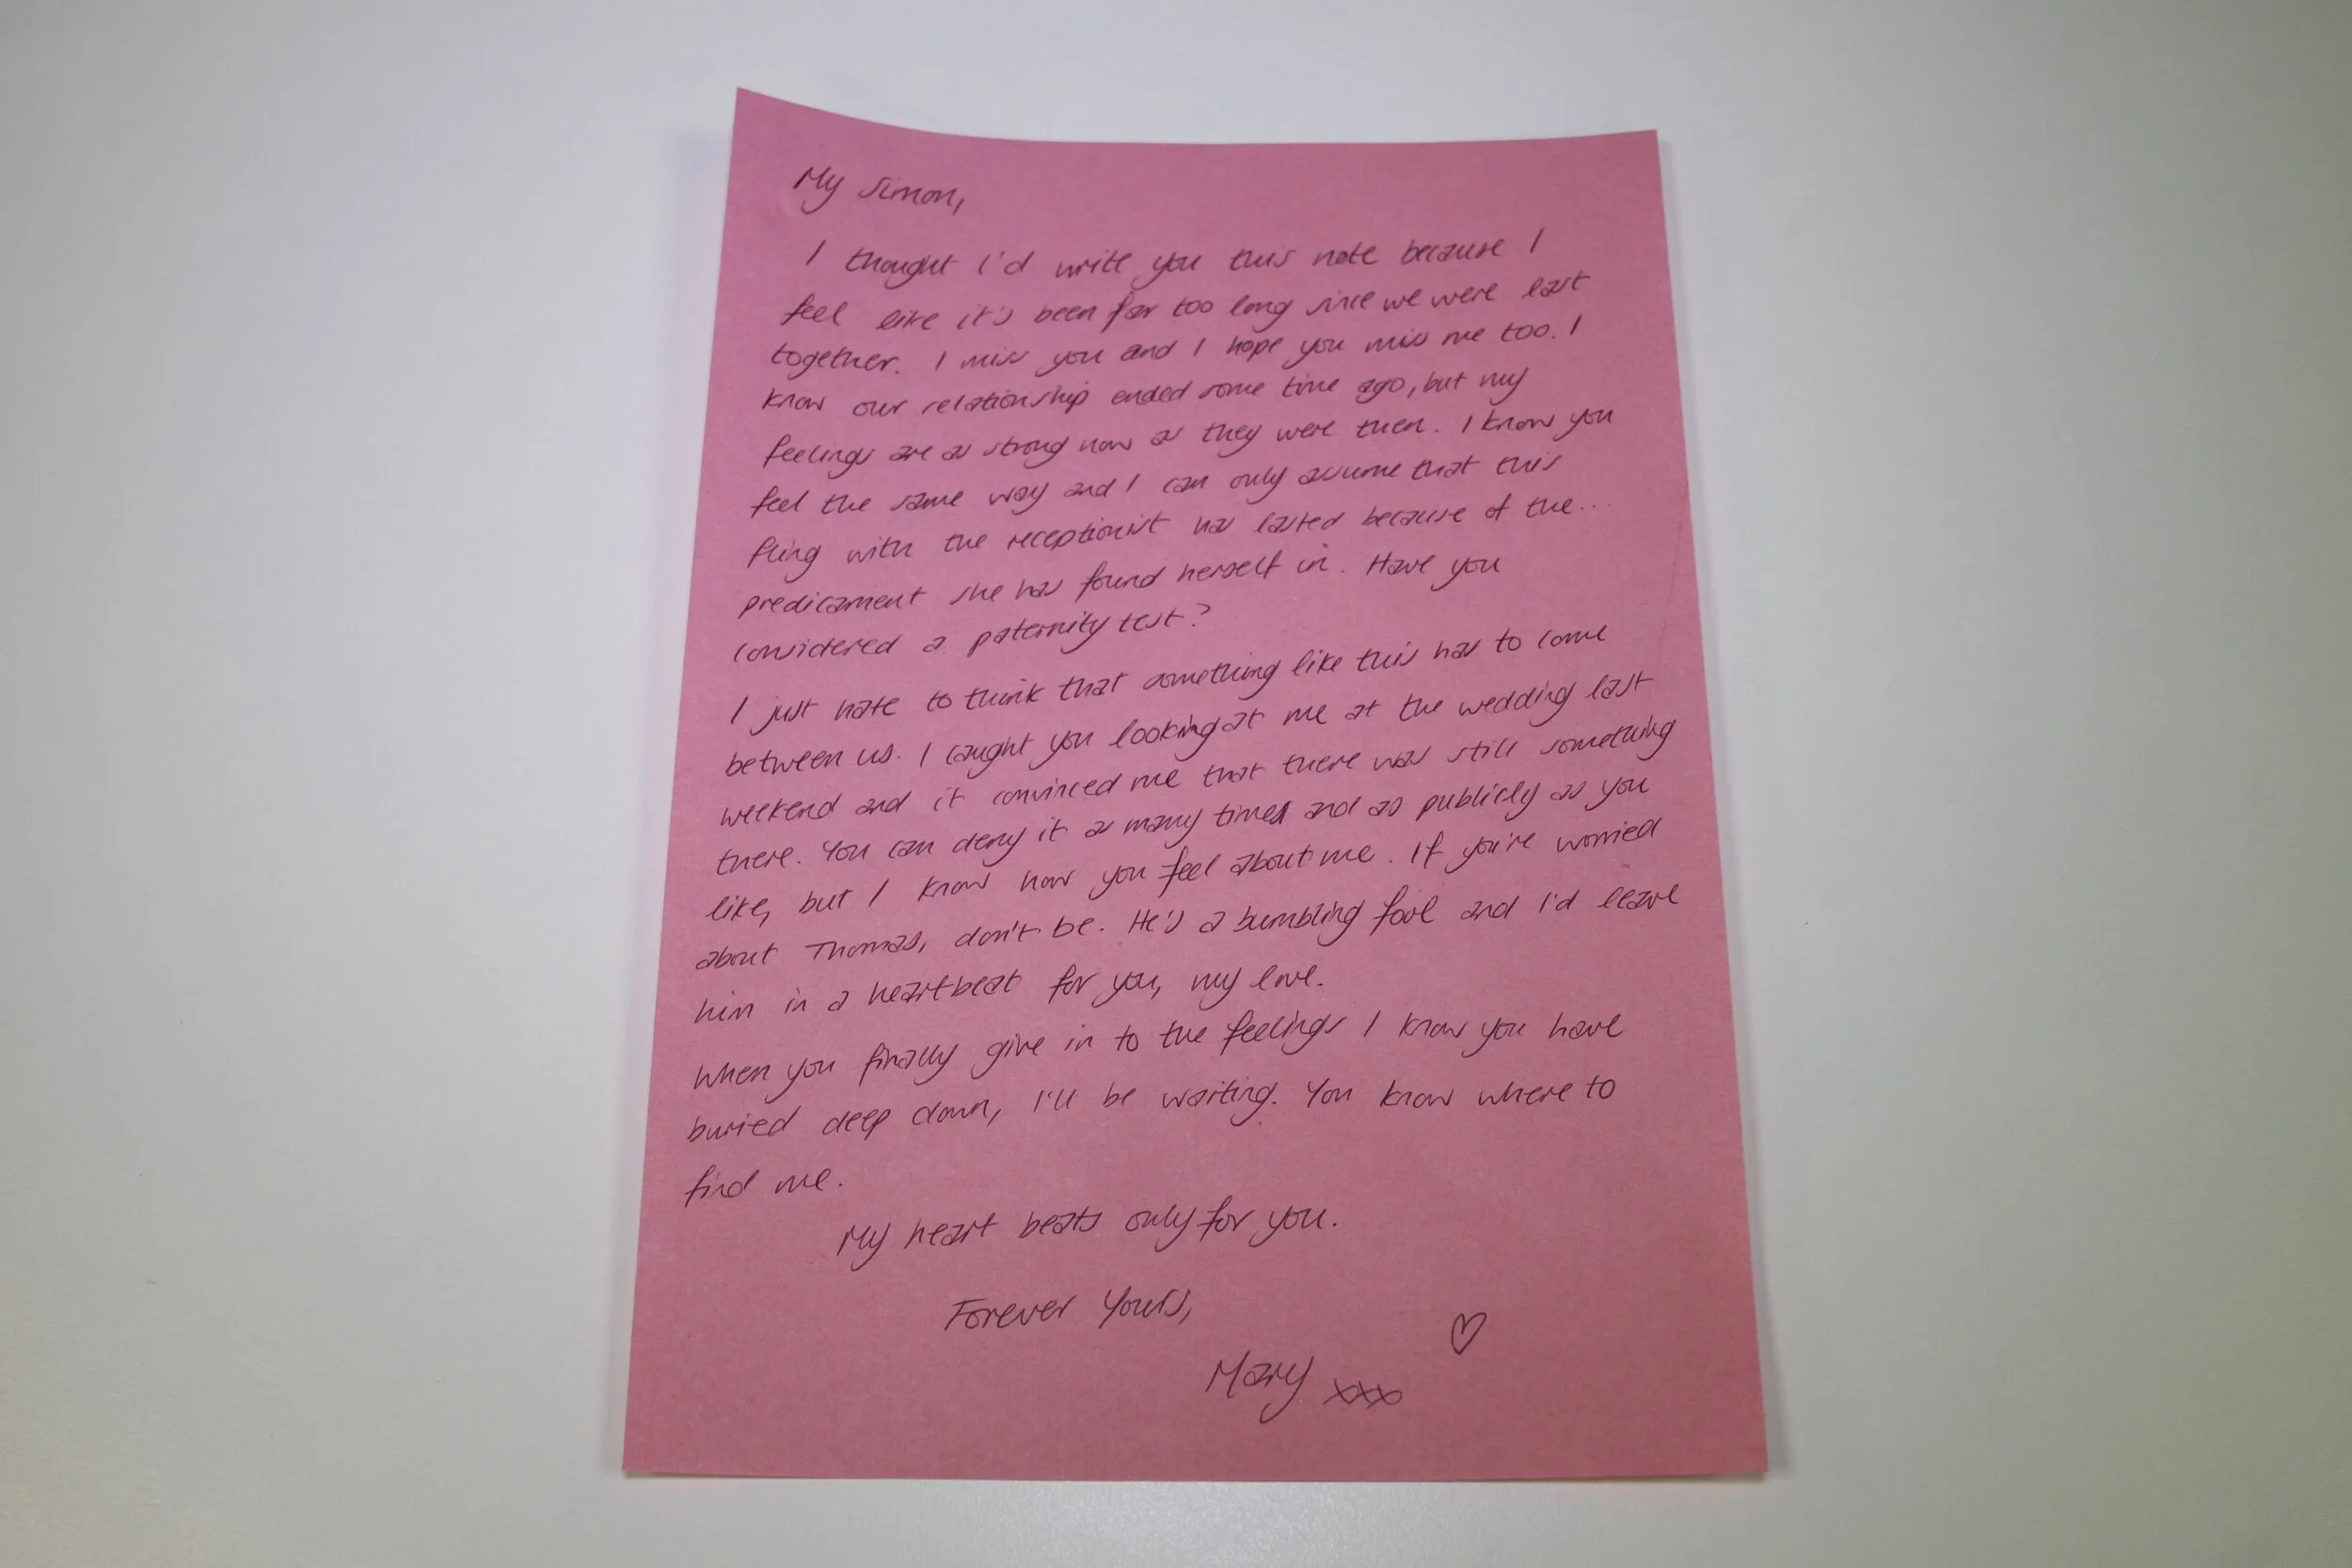 My Simon,
I thought I'd write you this note because I
feel like it's been far too long since we were last
together. I miss you and I hope you miss me too. I
know our relationship ended some time ago, but my
feelings are as strong now as they were then. I know you
feel the same way and I can only assume that this
fling with the receptionist has lasted because of the...
predicament she has found herself in. Have you
considered a paternity test?
I just hate to think that something like this has to come
between us. I caught you looking at me at the wedding last
weekend and it convinced me that there was still something
there. You can deny it as many times and as publicly as you
like, but I know how you feel about me. If you're worried
about Thomas, don't be. He's a bumbling fool and I'd leave
him in a heartbeat for you, my love.
When you finally give in to the feelings I know you have
buried deep down, I'll be waiting. You know where to
find me.
My heart beats only for you.
Forever Yours,
Mary xxx ♡